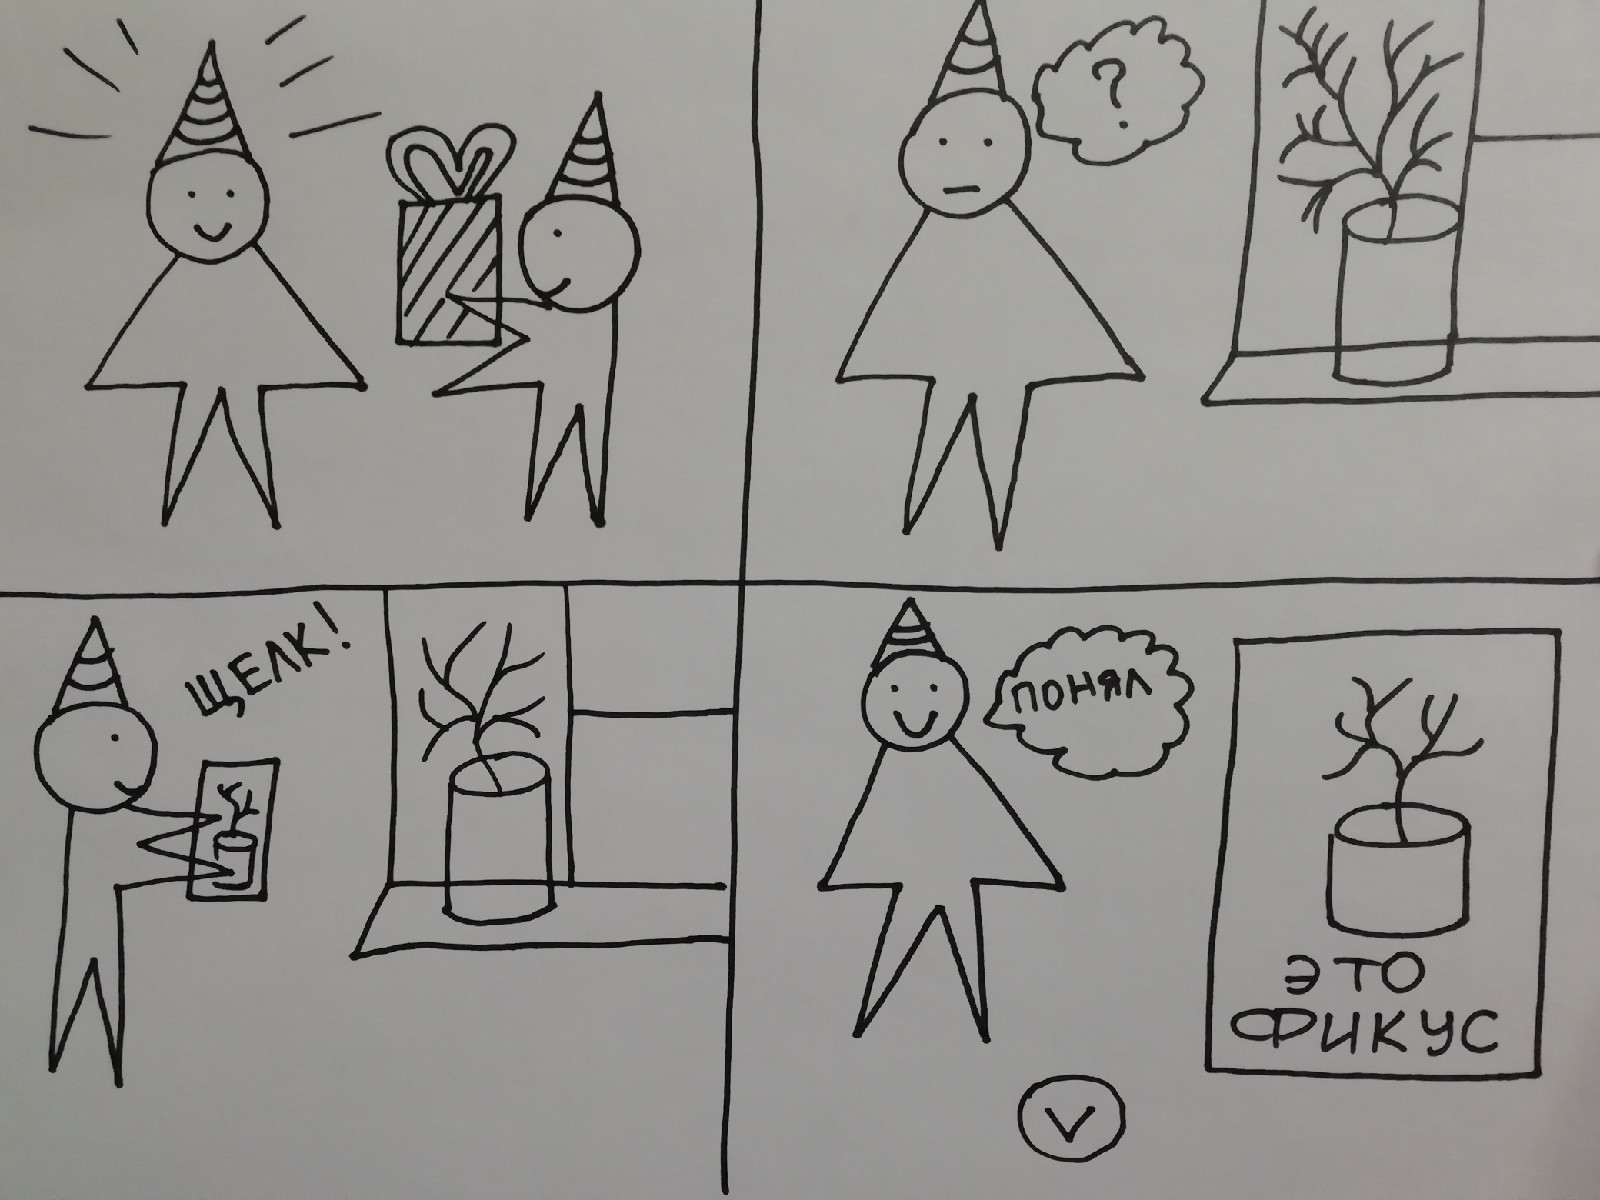 ?
ЩЕЛК!
ПОНЯЛ
ЭТО
ФИКУС